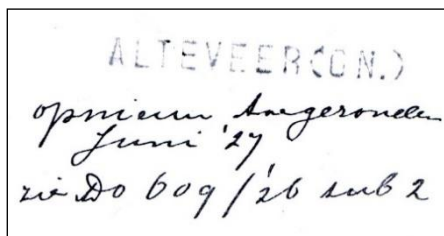 ALTEVEER(GN.)
opnieuw toegezonden
Juni '27
zie Do 609/'26 sub 2